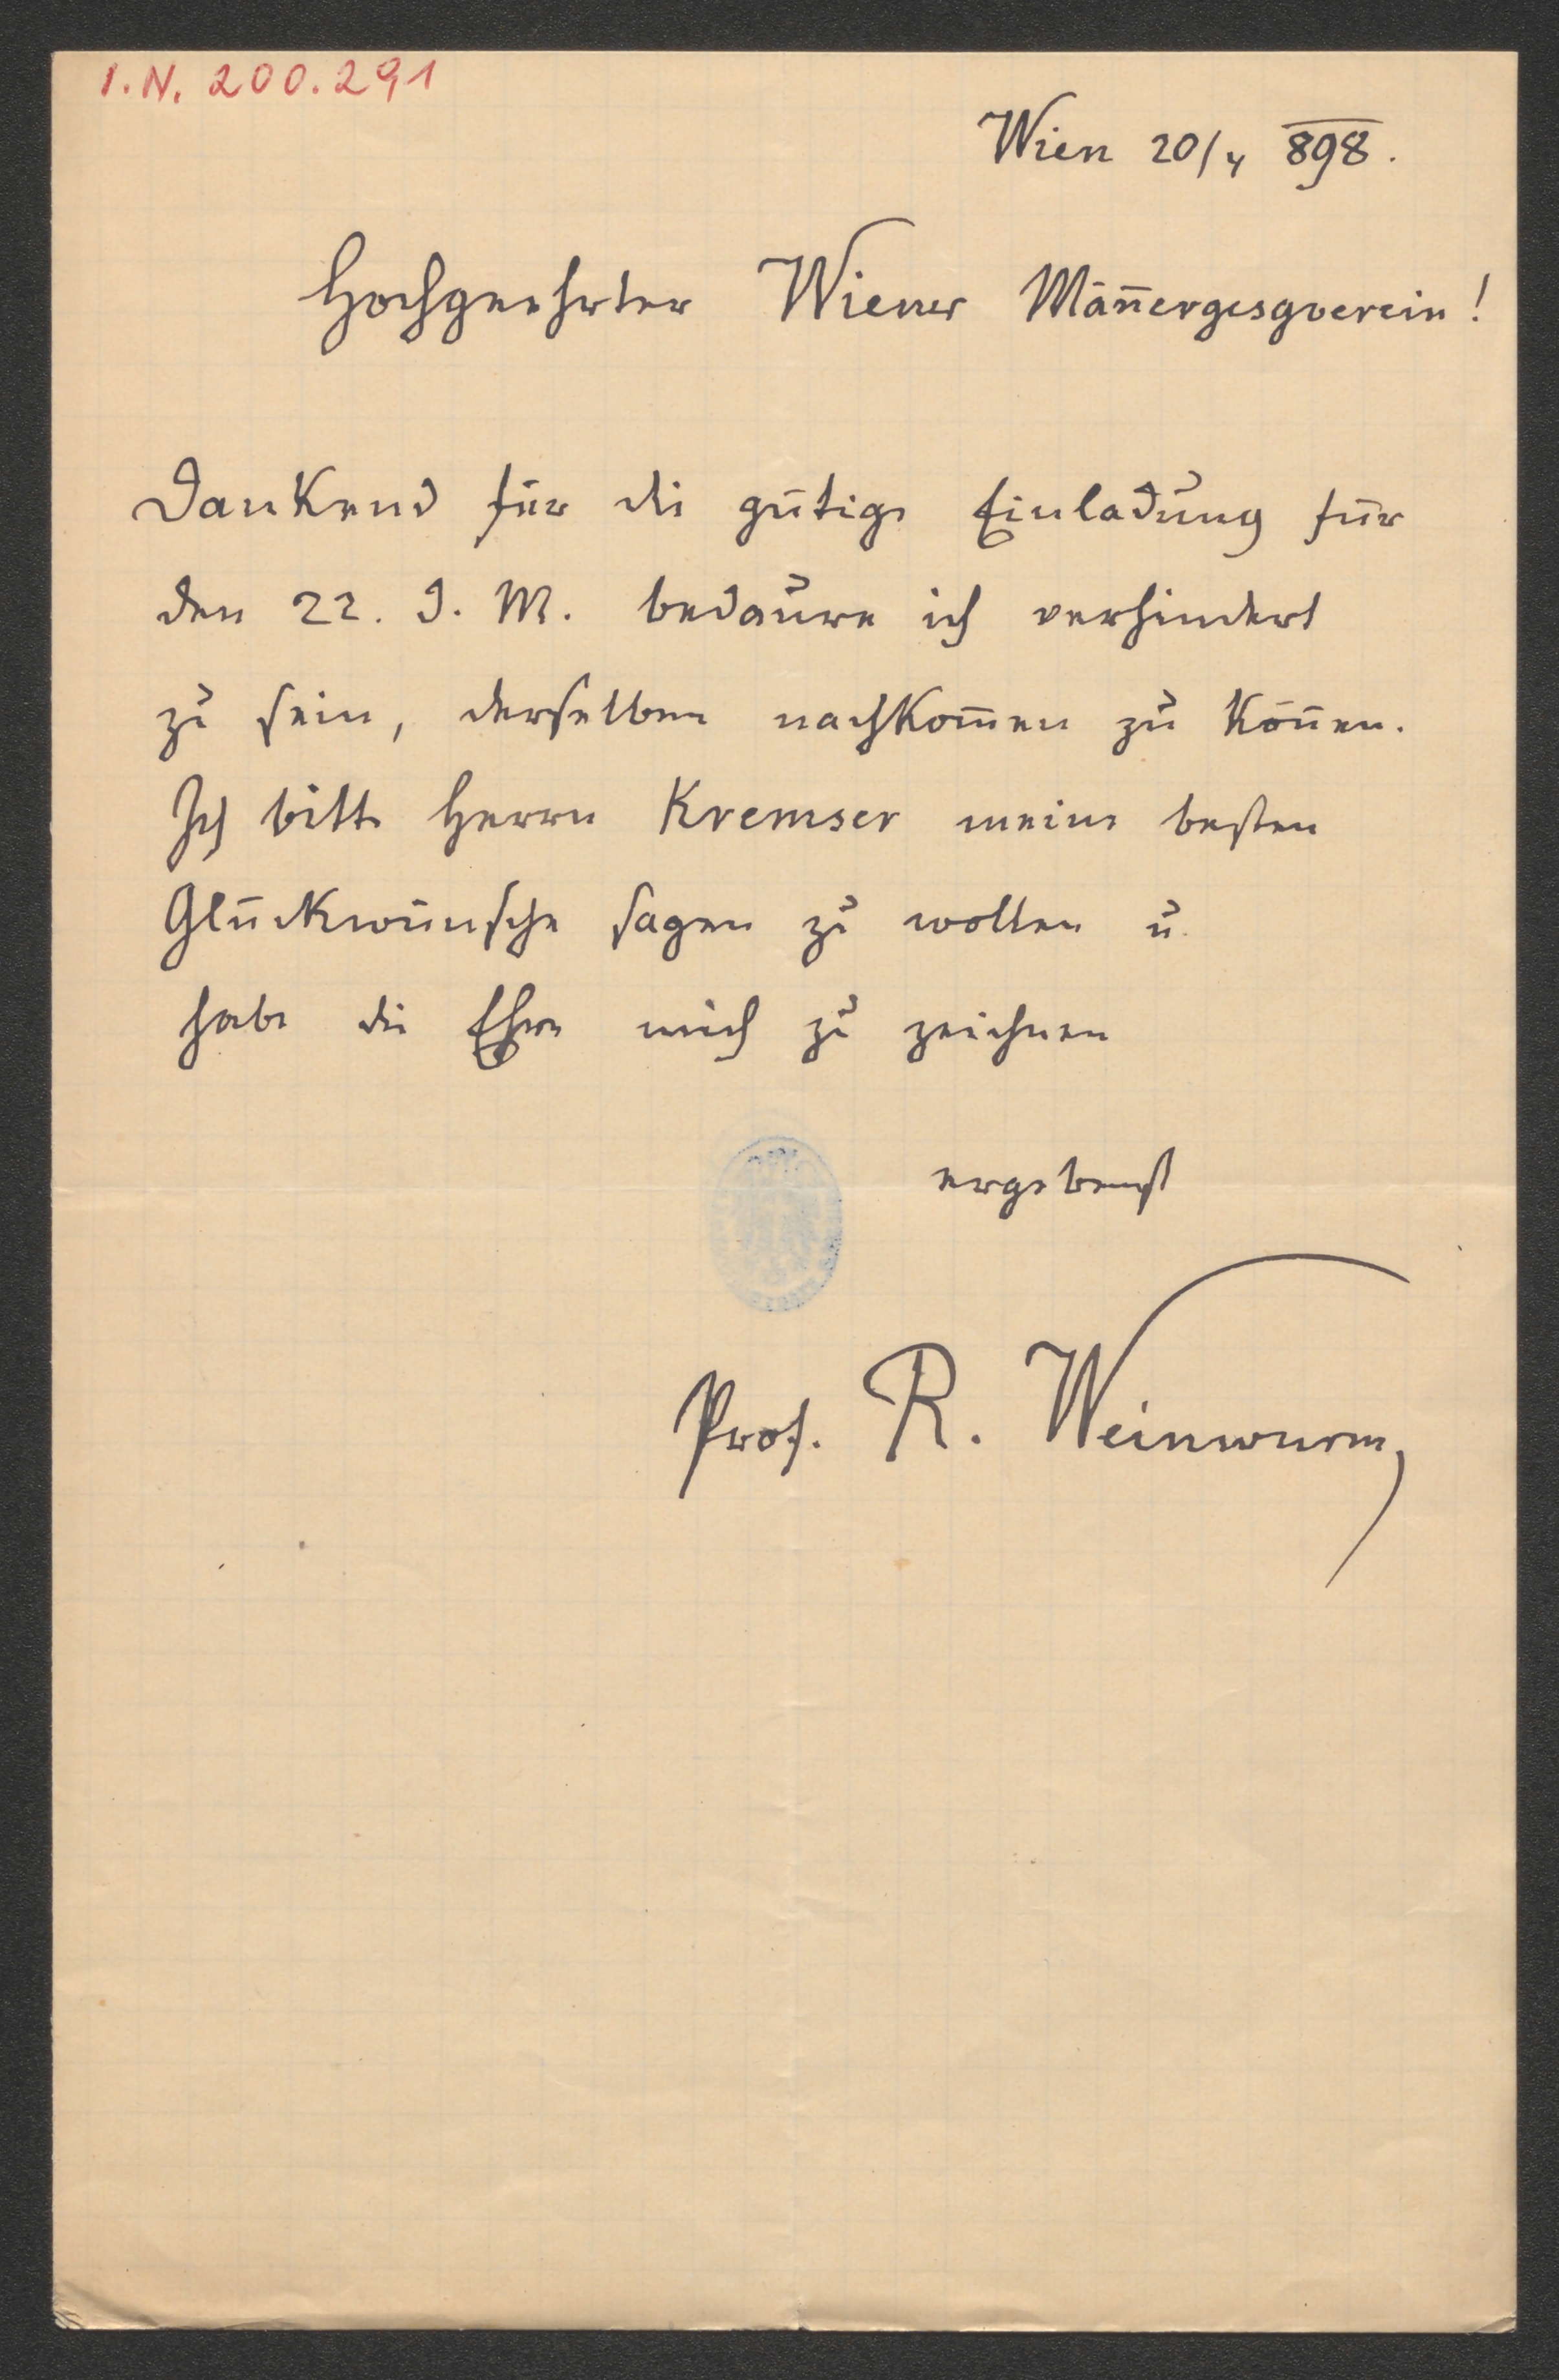 I.N. 200.291
Wien 20/4 898.
Hochgeehrter Wiener Mäñergesgverein!
Dankend für die gütige Einladung für
den 22. d. M. bedaure ich verhindert
zu sein, derselben nachkom̄en zu köñen.
Ich bitte Herrn Kremser meine besten
Glückwünsche sagen zu wollen u.
habe die Ehre mich zu zeichnen
ergebenst
Prof. R. Weinwurm